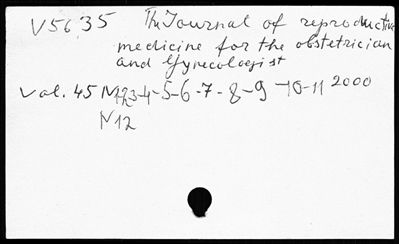 V5635 The Journal of reproductive
medicine for the obstetrician
and Gynecologist
Vol. 45 N1,2,3-4-5-6-7-8-9-10-11 2000
N12